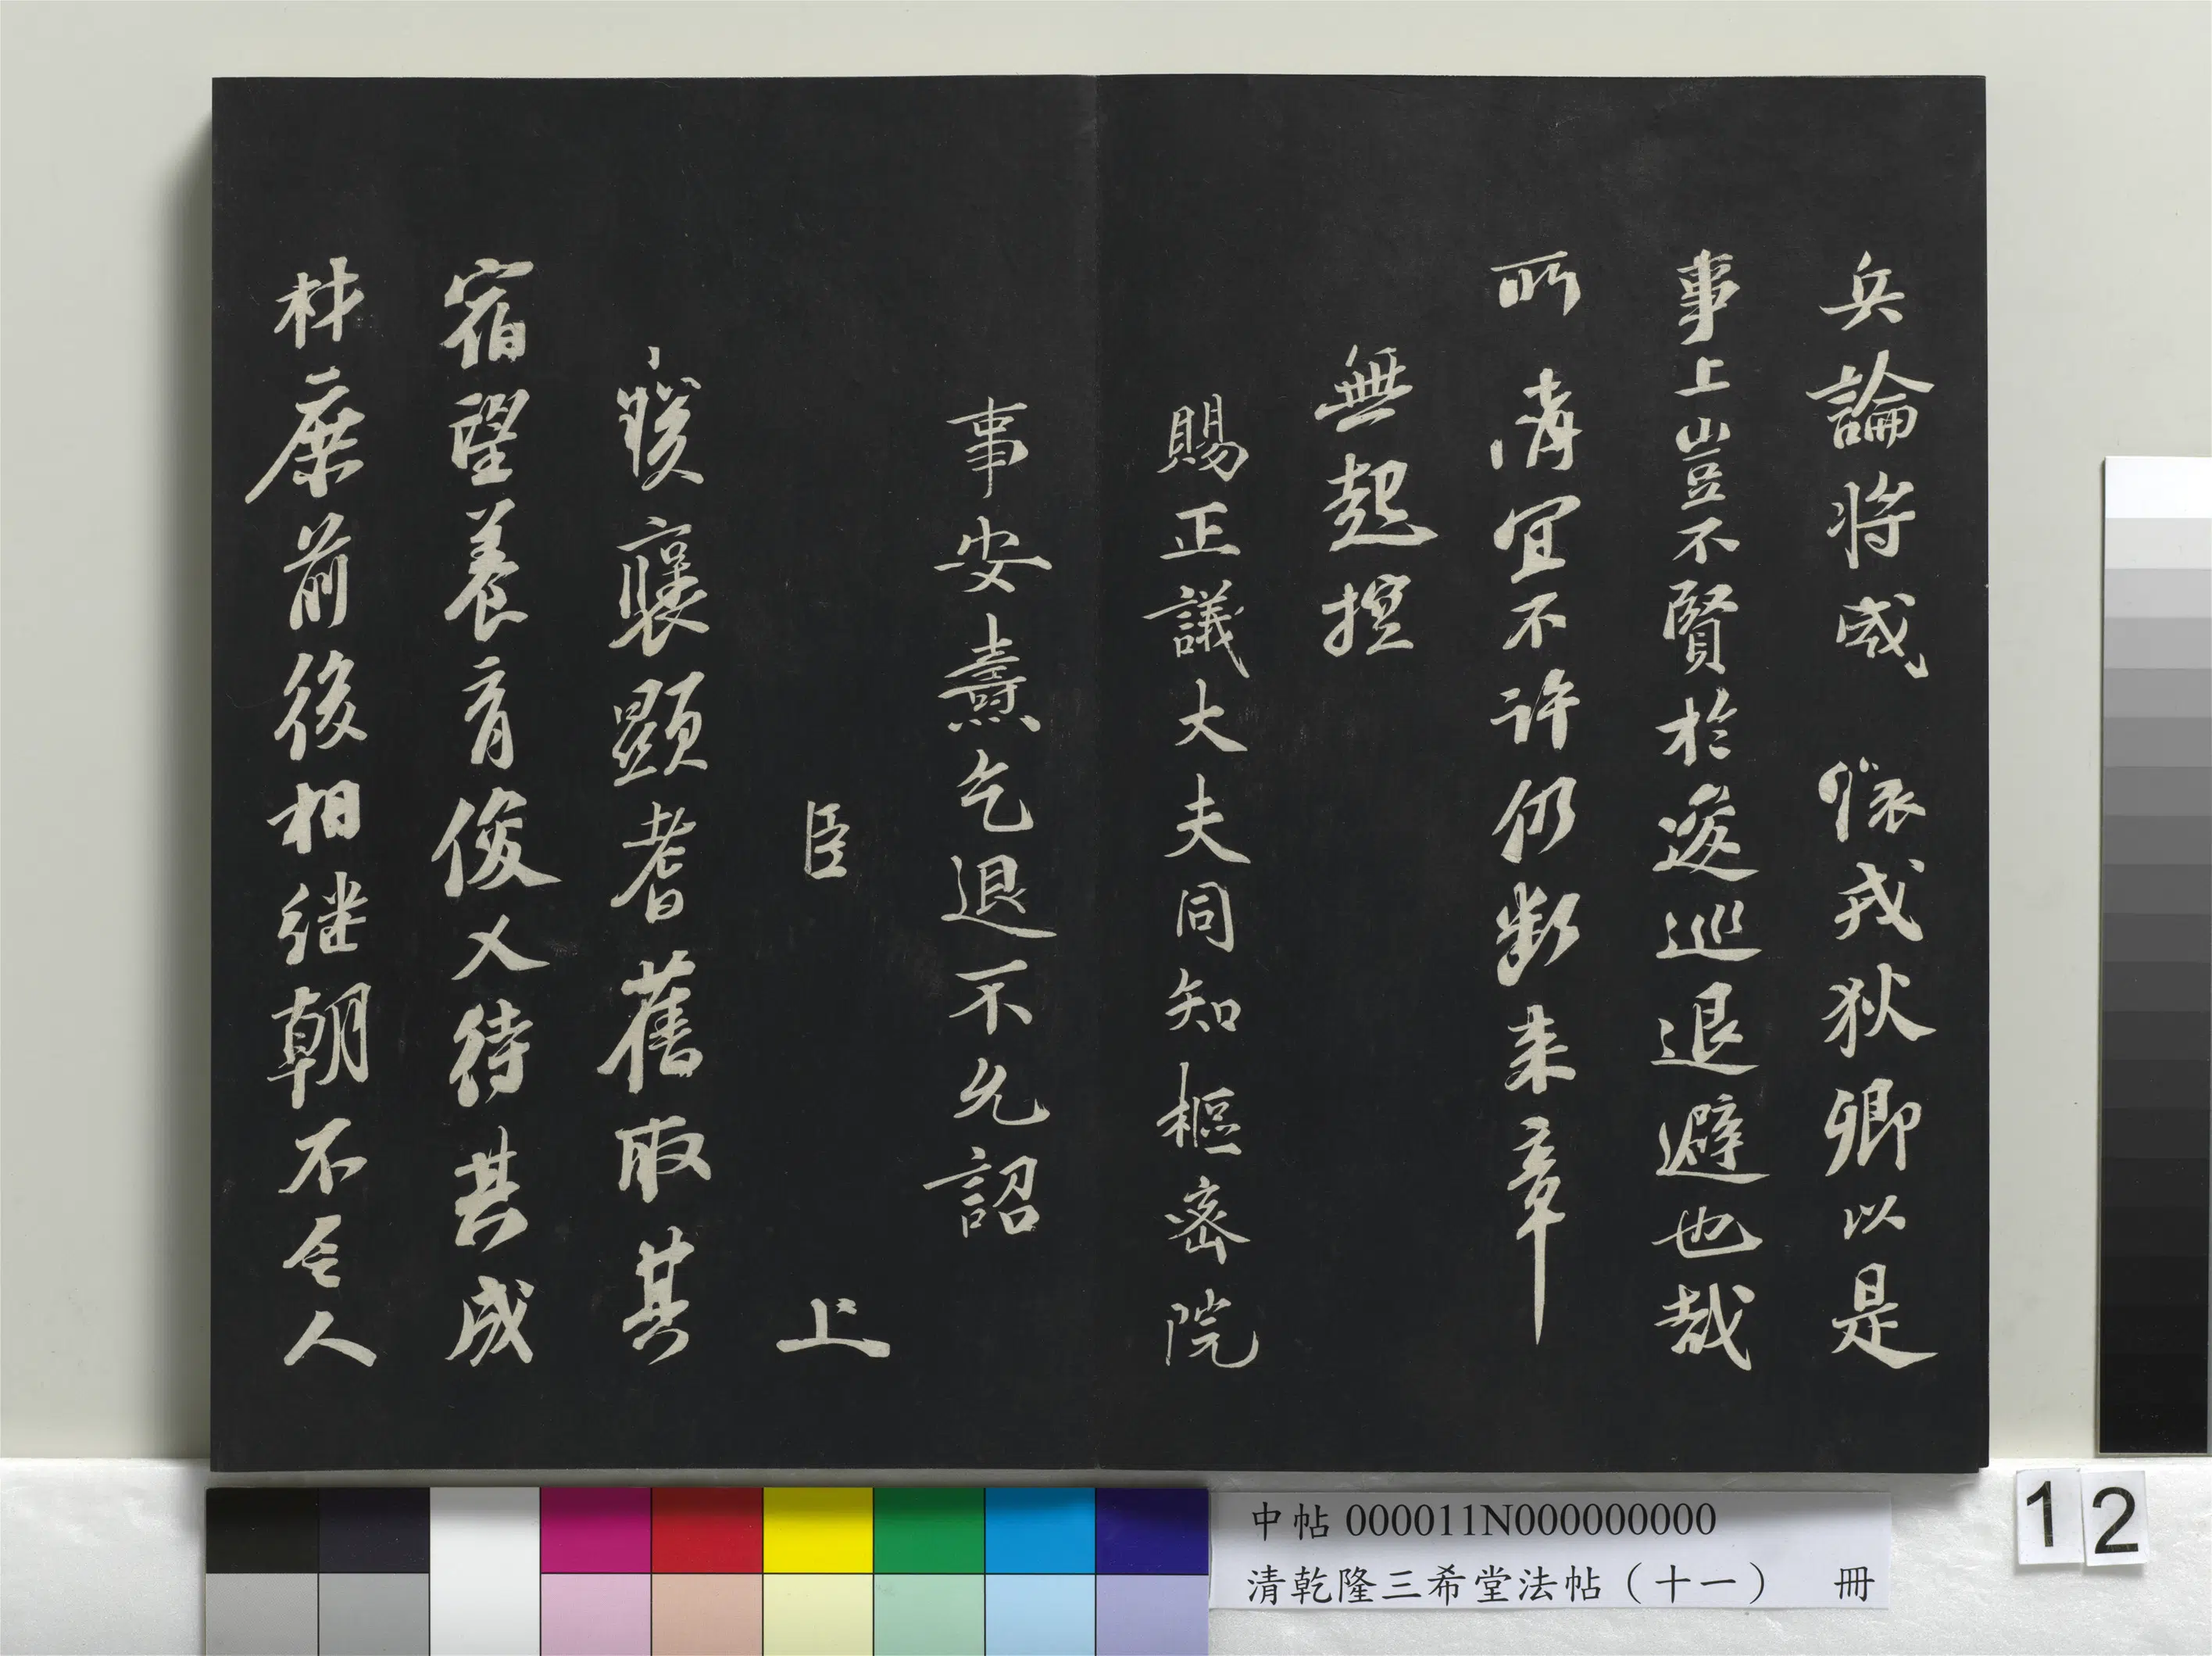 兵論將威懷戎狄卿以是
事上豈不賢於逡巡退避也哉
所請宜不許仍斷来章
無起
賜正議大夫同知樞密院
事安燾乞退不允詔
臣 上
朕襃顯耆舊取其
宿望養育俊乂待其成
材庶前後相継朝不乏人
中帖 000011N000000000
清乾隆三希堂法帖（十一） 冊
12